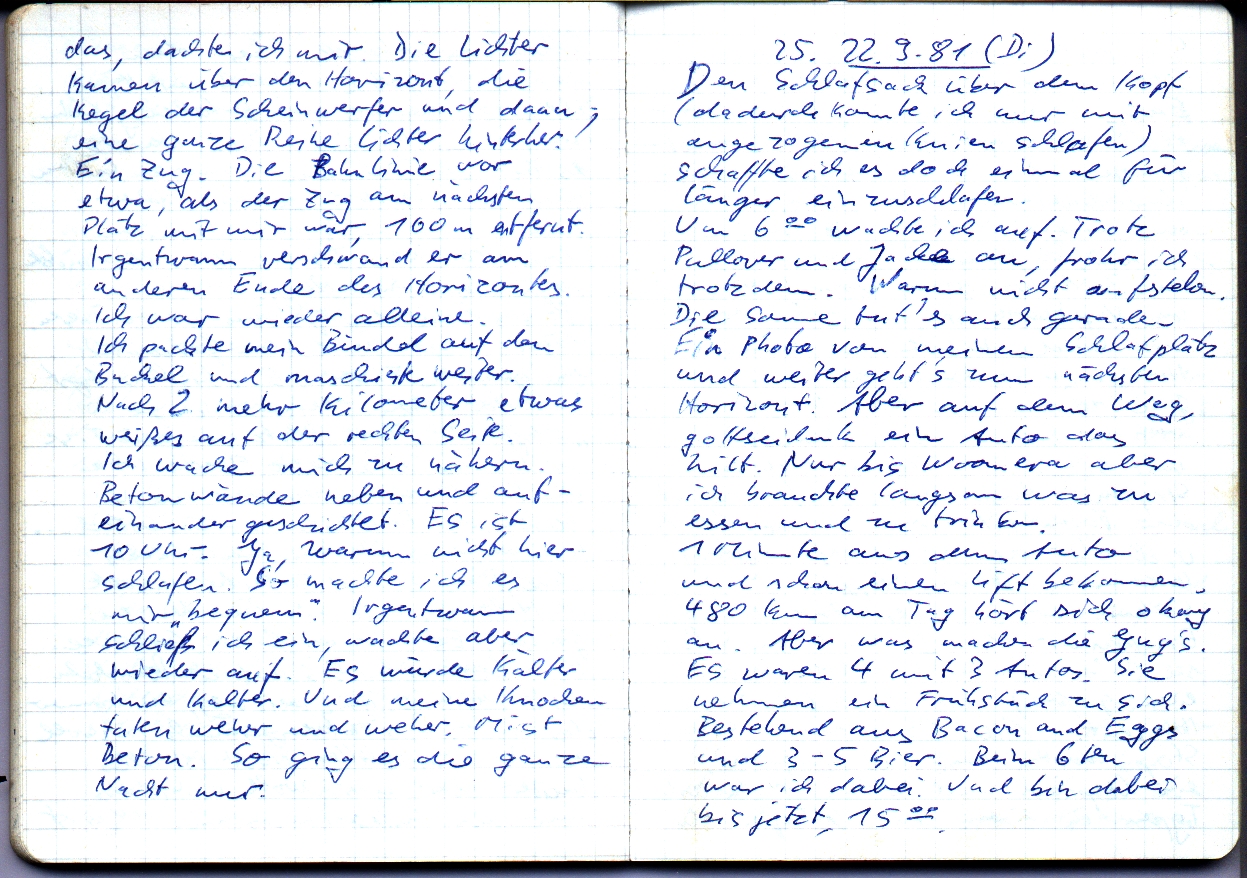 das, dachte ich mir. Die Lichter
kamen über den Horizont, die
Kegel der Scheinwerfer und dann,
eine ganze Reihe Lichter hinterher.
Ein Zug. Die Bahnlinie war
etwa, als der Zug am nächsten
Platz mit mir war, 100 m entfernt.
Irgentwann verschwand er am
anderen Ende des Horizontes.
Ich war wieder alleine.
Ich packte mein Bündel auf den
Buckel und maschierte weiter.
Nach 2 mehr Kilometer etwas
weißes auf der rechten Seite.
Ich wache mich zu nähern.
Betonwände neben und auf-
einander geschichtet. Es ist
10 Uhr. Ja, warum nicht hier
schlafen. So machte ich es
mir „bequem". Irgentwann
schlief ich ein, wachte aber
wieder auf. Es wurde Kälter
und Kälter. Und meine Knochen
taten weher und weher. Mist
Beton. So ging es die ganze
Nacht nur.
25. 22.9.81 (Di)
Den Schlafsack über dem Kopf
(dadurch konnte ich nur mit
angezogenen Knien schlafen)
schaffte ich es doch einmal für
länger einzuschlafen.
Um 6 00 wachte ich auf. Trotz
Pullover und Jacke an, frohr ich
trotzdem. Warum nicht aufstehen.
Die Sonne tut's auch gerade.
Ein Photo von meinem Schlafplatz
und weiter geht's zum nächsten
Horizont. Aber auf dem Weg,
gottseidank ein Auto das
hilt. Nur bis Woomera aber
ich brauchte langsam was zu
essen und zu trinken.
1 Minute aus dem Auto
und schon einen Lift bekommen.
480 Km am Tag hört sich okay
an. Aber was machen die Guy's.
Es waren 4 mit 3 Autos. Sie
nehmen ein Frühstück zu sich.
Bestehend aus Bacon and Eggs
und 3-5 Bier. Beim 6ten
war ich dabei. Und bin dabei
bis jetzt, 15 00.